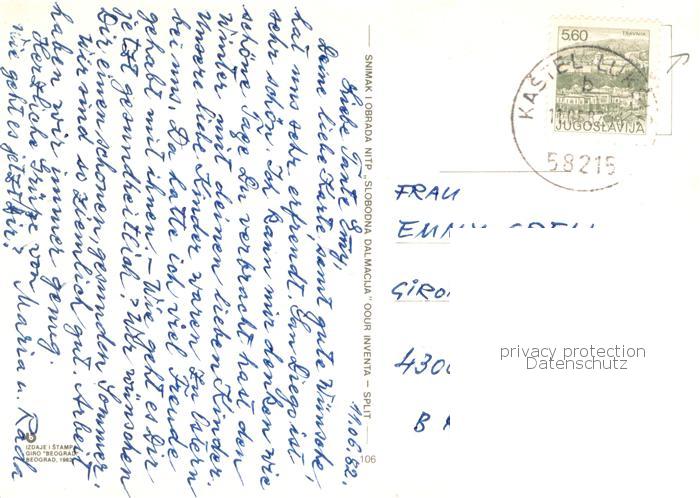 11.06.82.
Liebe Tante Emy,
Deine liebe Karte, samt gute Wünsche,
hat uns sehr erfreudt. San Diego ist
sehr schön. Ich kann mir denken wie
schöne Tage Du verbracht hast den
Winter mit deinen lieben Kinder.
Unsere liebe Kinder waren zu Ostern
bei uns. Da hatte ich viel Freude
gehabt mit ihnen. – Wie geht es Dir
jetzt gesundheitlich? Wir wünschen
Dir einen schönen, gesunden Sommer.
Wir sind so ziemlich gut. Arbeit
haben wir immer genug.
Herzliche Grüße von Maria u.
wie geht es jetzt Dir?
SNIMAK I OBRADA NITP „SLOBODNA DALMACIJA" OOUR INVENTA — SPLIT
106
IZDAJE I ŠTAMPA
GIRO "BEOGRAD"
BEOGRAD, 1982
5.60
TRAVNIK
JUGOSLAVIJA
KAŠTEL
b
58215
FRAU
EMMY
GIRO
430
B
privacy protection
Datenschutz